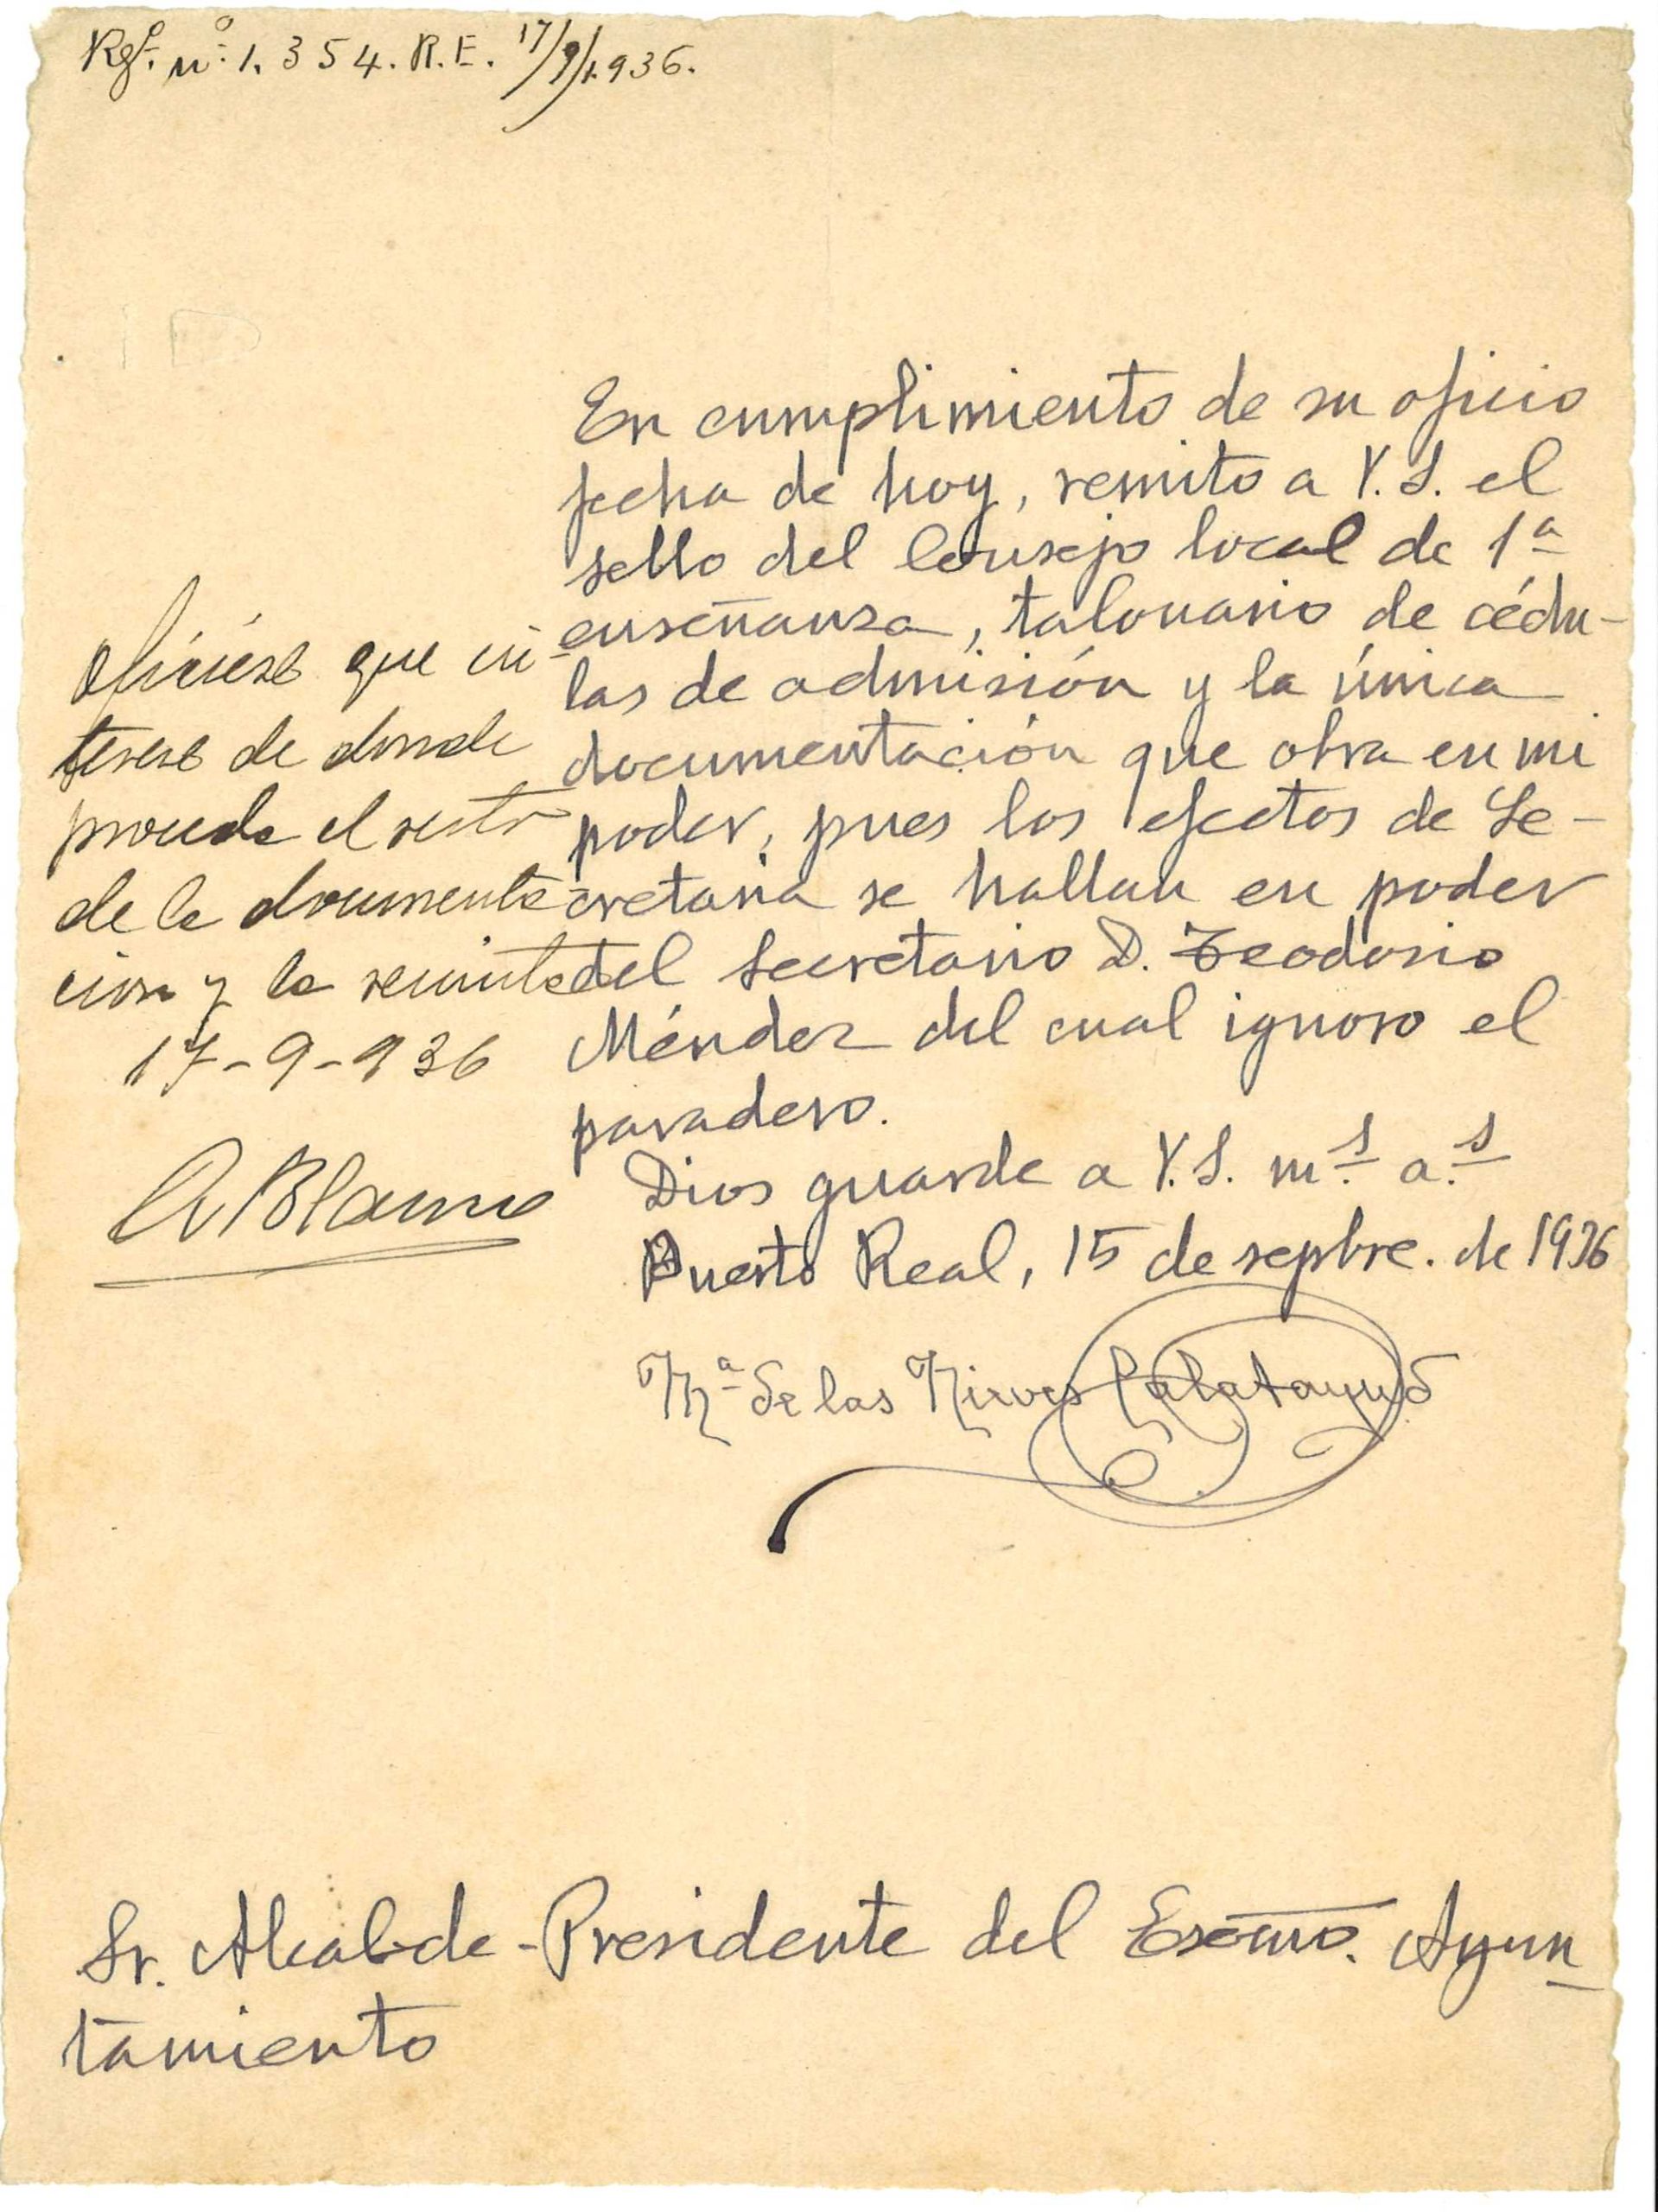 Rgº. nº. 1.354. R.E. 17/9/1.936.
En cumplimiento de su oficio
fecha de hoy, remito a V.S. el
sello del Consejo local de 1ª
enseñanza, talonario de cédu-
las de admisión y la única
documentación que obra en mi
poder, pues los efectos de Se-
cretaria se hallan en poder
del Secretario D. Teodosio
Méndez del cual ignoro el
paradero.
Dios guarde a V.S. mˢ. aˢ.
Puerto Real, 15 de sepbre. de 1936
Mª de las Nieves Calatayud
Ofíciese que in
terese de donde
proceda el resto
de la documenta
cion y la remita
17-9-936
Blanco
Sr. Alcalde-Presidente del Excmo. Ayun-
tamiento